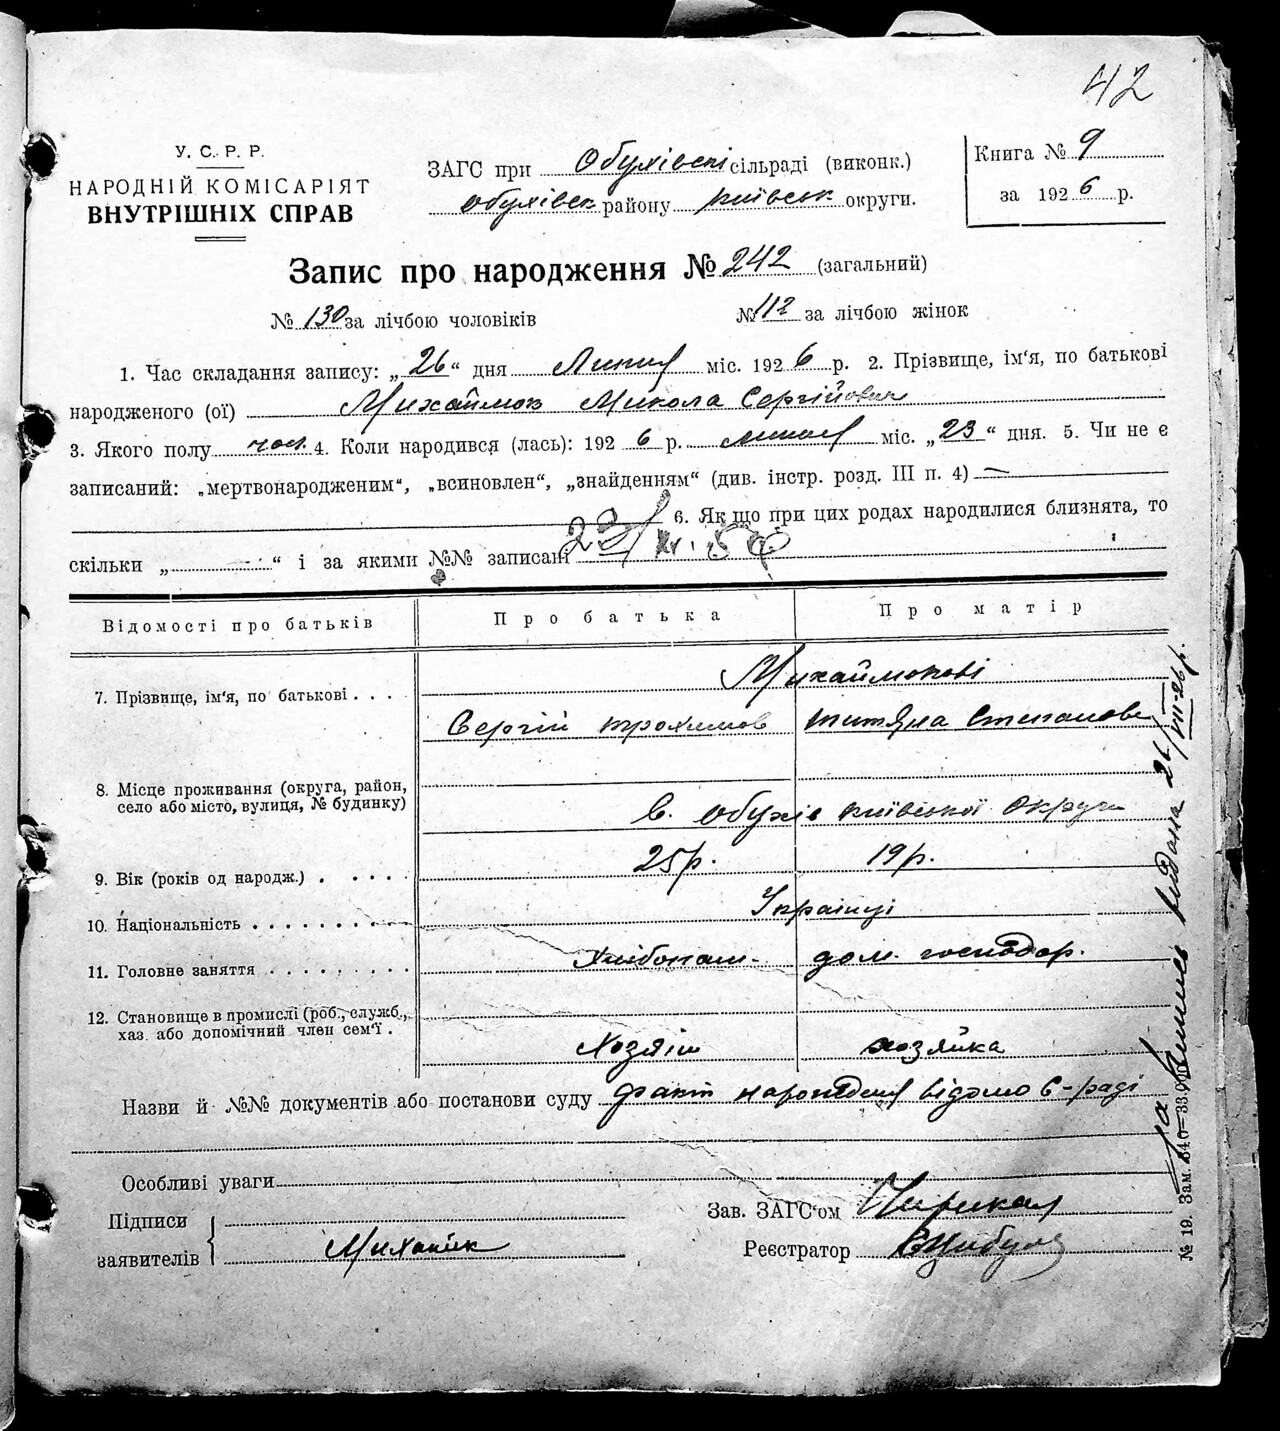 42
У. С. Р. Р.
НАРОДНІЙ КОМІСАРІЯТ
ВНУТРІШНІХ СПРАВ
ЗАГС при Обухівскі сільраді (виконк.)
Обухівск району Київськ округи.
Книга № 9
за 1926 р.
Запис про народження № 242 (загальний)
№ 130 за лічбою чоловіків № 112 за лічбою жінок
1. Час складання запису: „26“ дня Липня міс. 1926 р. 2. Прізвище, ім'я, по батькові
народженого (ої) Микола Сергійович
3. Якого полу чол. 4. Коли народився (лась): 1926 р. липня міс. „23“ дня. 5. Чи не є
записаний: „мертвонародженим“, „всиновлен“, „знайденям“ (див. інстр. розд. III п. 4) —
6. Як що при цих родах народилися близнята, то
скільки „ — “ і за якими №№ записані
Відомості про батьків Про батька Про матір
7. Прізвище, ім'я, по батькові . . .
Сергій Трохимов Степанова
8. Місце проживання (округа, район,
село або місто, вулиця, № будинку)
с. Обухів Київської Округи
9. Вік (років од народж.) . . . . . 25р. 19р.
10. Національність . . . . . . . . . Українці
11. Головне заняття . . . . . . . . . Хлібопаш. дом. господар.
12. Становище в промислі (роб., служб.,
хаз. або допомічний член сем'ї .
Хозяін хозяйка
Назви й №№ документів або постанови суду факт народження відомо С-раді
Особливі уваги
Підписи
заявителів
Зав. ЗАГС'ом
Реєстратор
видана 26/VII-26р.
№ 19. Зам.